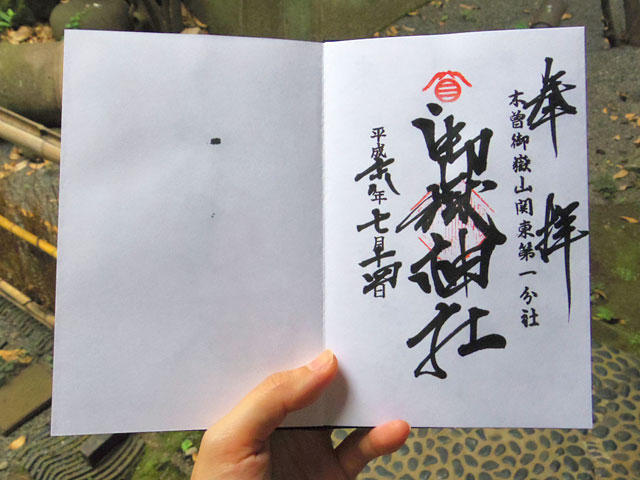 奉拝
木曽御嶽山関東第一分社
御嶽神社
平成廿八年七月十四日